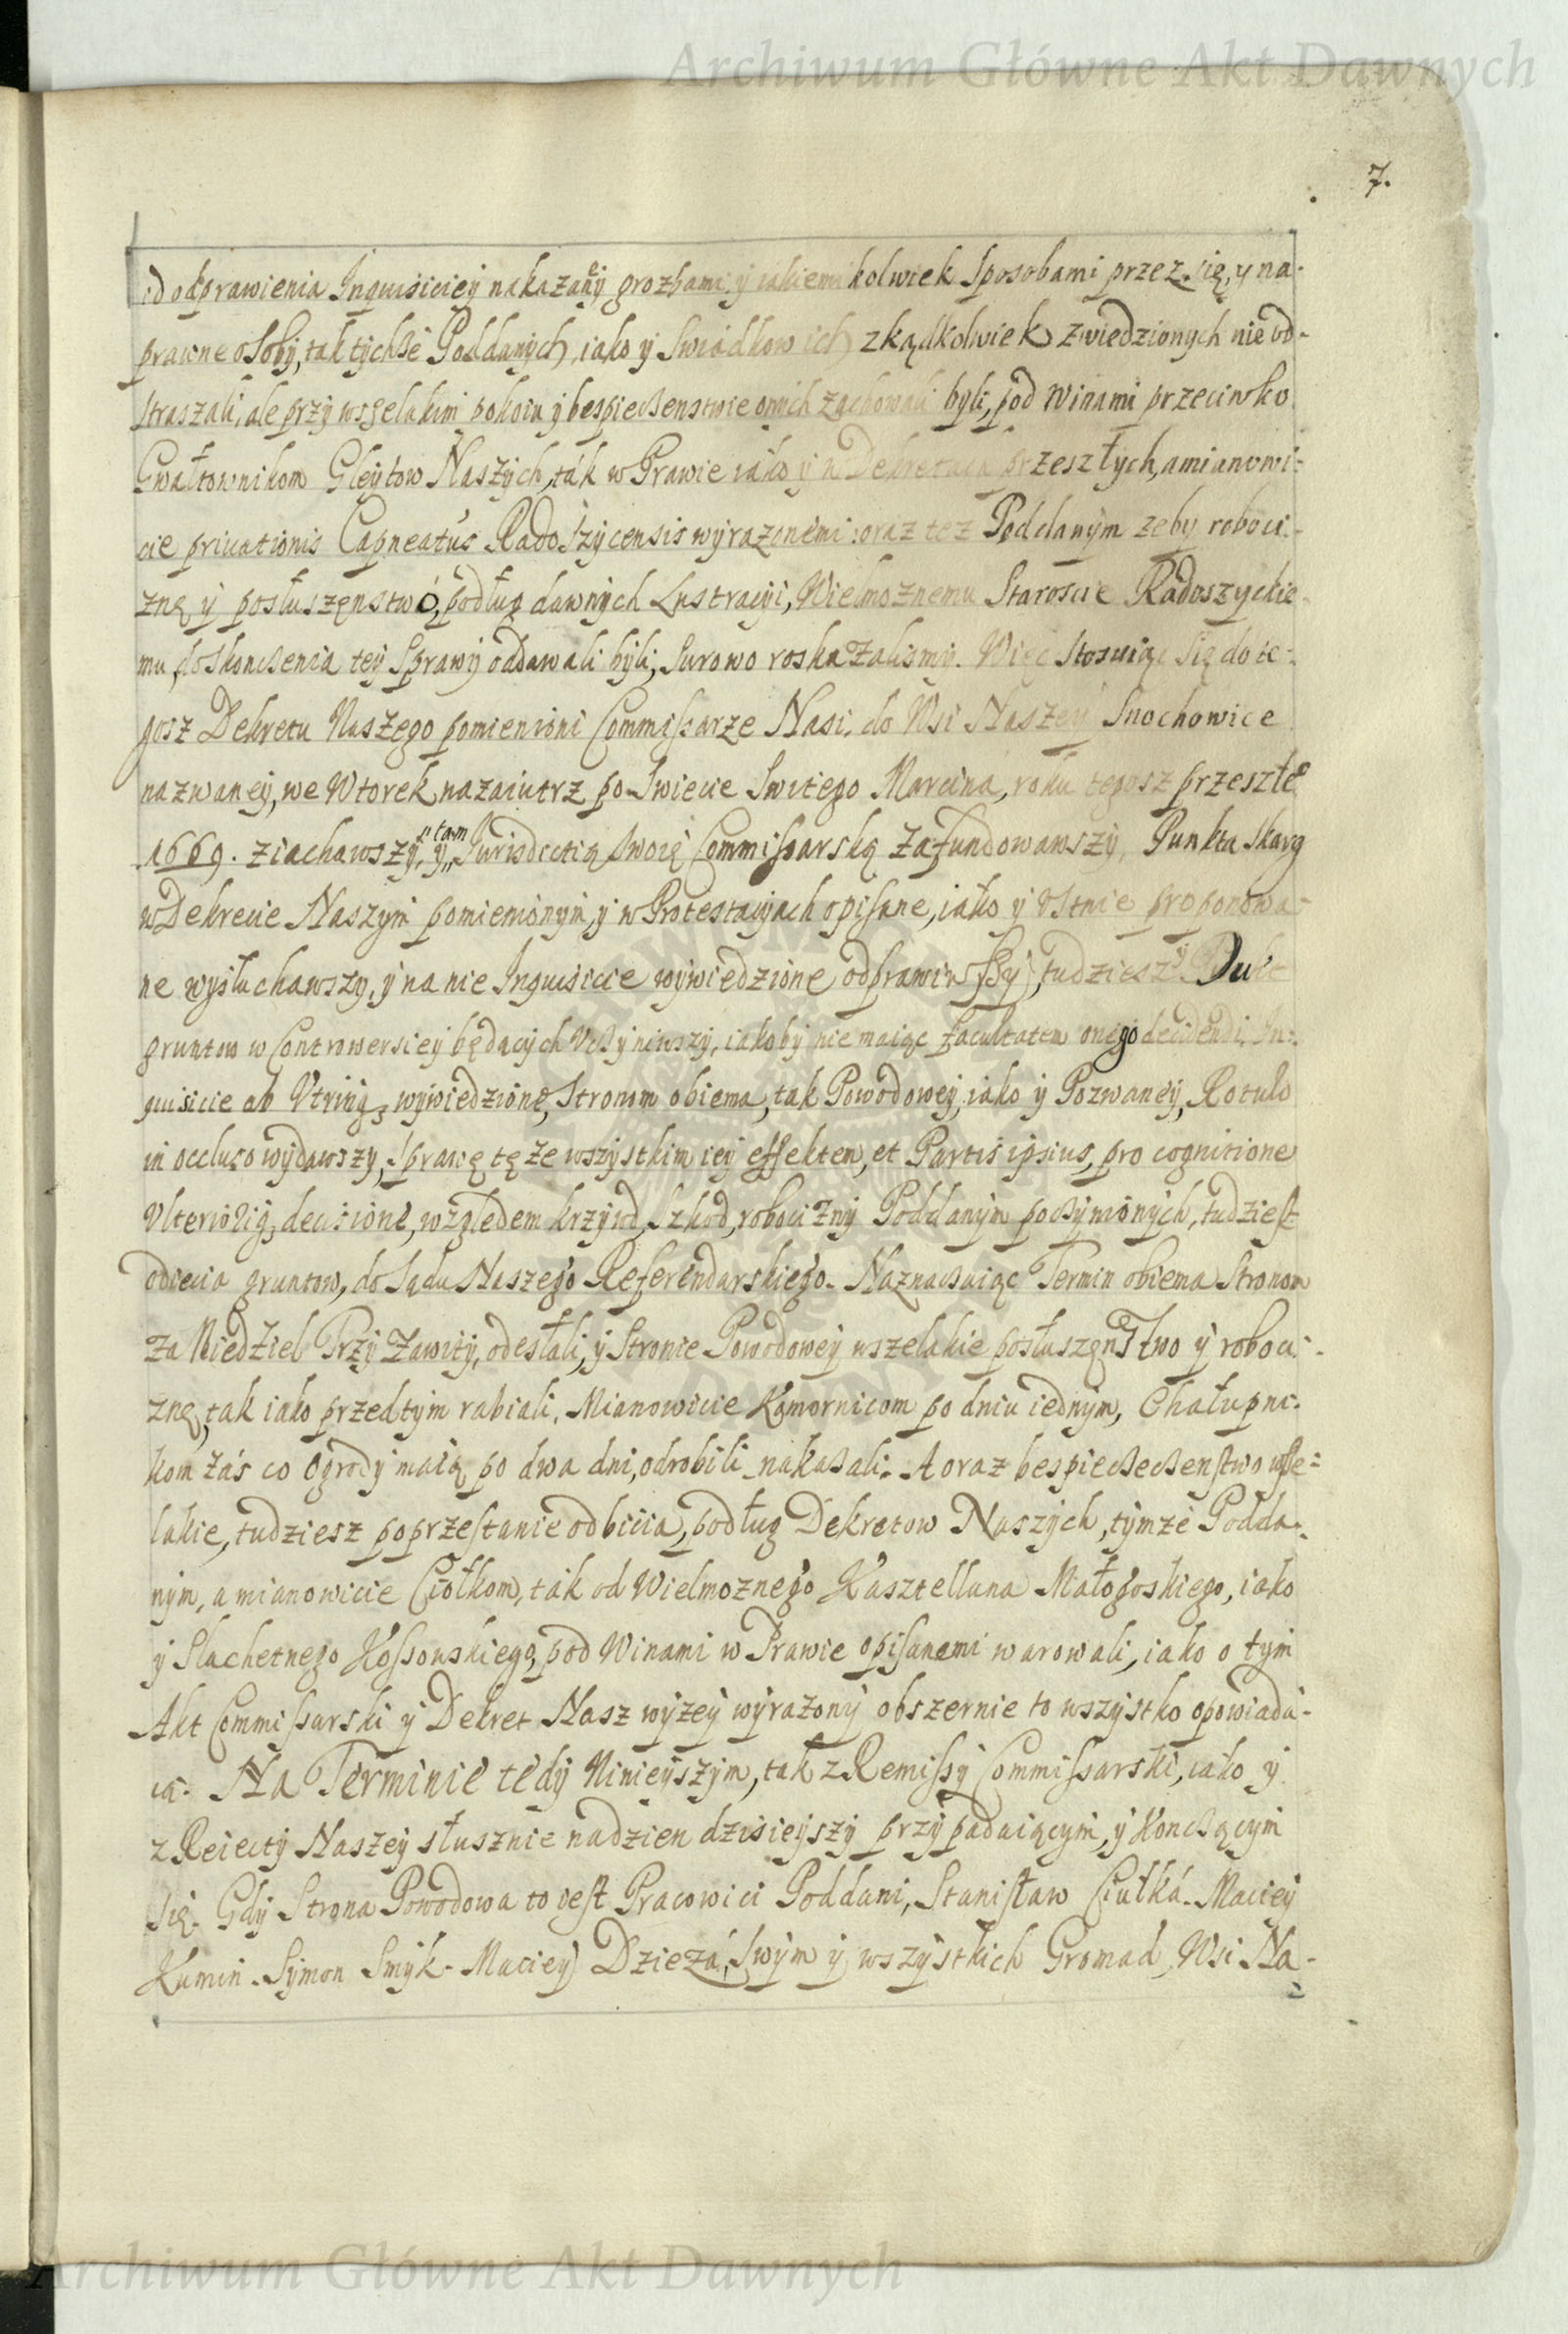 Archiwum Główne Akt Dawnych
7.
od odprawienia Inquisiciey nakazaney grozbami y iakiemikolwiek sposobami przez się, y na-
prawne osoby, tak tychże Poddanych iako y Swiadkow ich zkądkolwiek zwiedzionych nie od-
straszali, ale przy wszelakim pokoiu y bespieczenstwie onych zachowali byli, pod winami przeciwko
Gwałtownikom Gleytow Naszych, ták w Prawie iáko y w Dekretach przeszłych, a mianowi-
cie priuationis Capneatus Radoszycensis wyrazonemi: oraz tez Poddanym zeby roboci-
znę y posłuszęnstwo, podług dawnych Lustracyi, Wielmoznemu Staroscie Radoszyckie-
mu, do skonczenia tey sprawy oddawali byli, surowo roskazalismy. Więc stosuiąc się do te-
gosz Dekretu Naszego pomienioni Commissarze Nasi, do Wsi Naszey Snochowice
nazwaney, we Wtorek nazaiutrz po Swięcie Swiętego Marcina, roku tegosz przeszłe
1669. ziachawszy, y tam Jurisdictią swoię Commissarską zafundowawszy, Punkta skarg
w Dekrecie Naszym pomienionym, y w Protestacyiach opisane, iako y Ustnie proponowa-
ne wysłuchawszy, y na nie Inquisicie wywiedzione odprawiwszy, tudziesz y
gruntow w Controwersiey będących Uczyniwszy, iakoby nie maiąc facultatem onego decidendi, In-
quisicie ab Utrinq wywiedzione, Stronom obiema, tak Powodowey, iako y Pozwaney, Rotulo
in occluso wydawszy, sprawę tę ze wszystkim iey effektem, et Partis ipsius, pro cognitione
Ulteriorig, decisione, względem krzywd, szkod, robocizny Poddanym poczynionych, tudziesz
odięcia gruntow, do Sądu Naszego Referendarskiego. Naznaczaiąc Termin obiema Stronom
za Niedziel Trzy Zawity, odesłali, y Stronie Powodowey wszelakie posłuszęnstwo y roboci-
znę, tak iako przedtym rabiali, Mianowicie Komornicom po dniu iednym, Chałupni-
kom zás co Ogrody maią po dwa dni, odrobili nakazali. A oraz bespieczeczenstwo wsze-
lakie, tudziesz poprzestanie odbicia, podług Dekretow Naszych, tymze Podda-
nym, a mianowicie Ciołkom, ták od Wielmoznego Kasztellana Małogoskiego, iako
y Slachetnego Kossowskiego, pod Winami w Prawie opisanemi warowali, iako o tym
Akt Commissarski y Dekret Nasz wyzey wyrazony obszernie to wszystko opowiada-
ią. Na Terminie tedy Ninieyszym, tak z Remissy Commissarski, iako y
z Reiecty Naszey słusznie na dzien dzisieyszy przypadaiącym, y Konczącym
się. Gdy Strona Powodowa to iest Pracowici Poddani, Stanisław Ciułká. Maciey
Kamin. Symon Smyk. Maciey Dziezá, Swym y wszystkich Gromad, Wsi Na-
Archiwum Główne Akt Dawnych